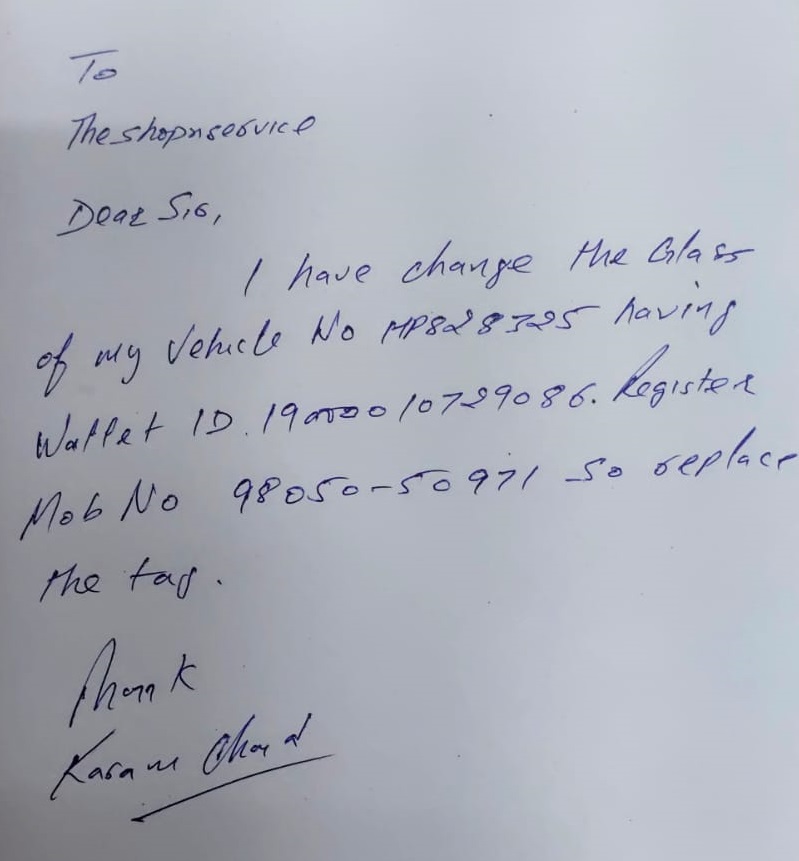 To
Theshopnservice
Dear Sir,
I have change the Glass
of my Vehicle No HP828325 having
Wallet ID. 190000010729086. Register
Mob No 98050-50971 So replace
the tag.
Thank
Karam Chand